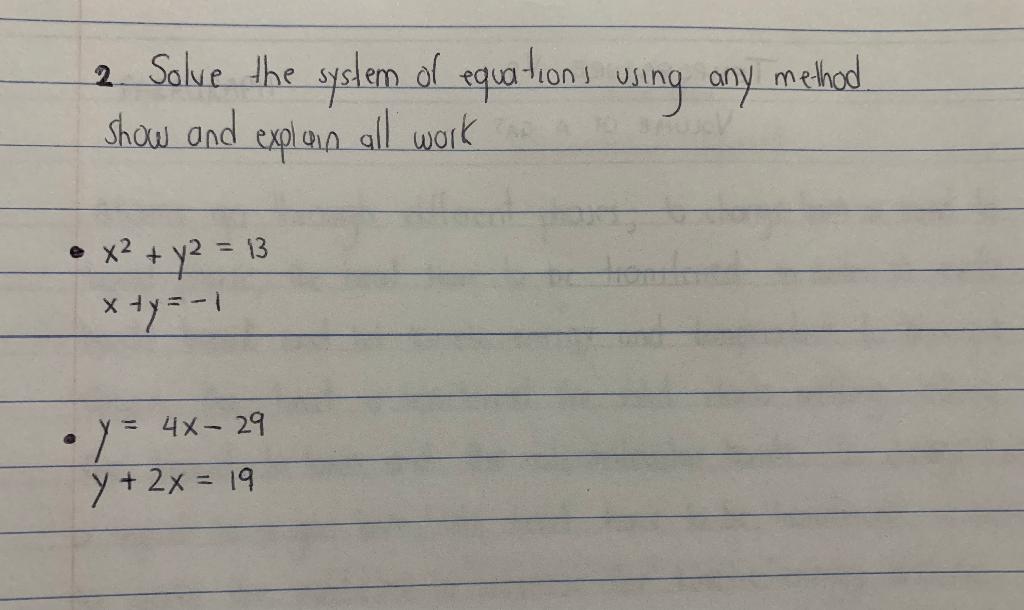 2 Solve the system of equations using any method
show and explain all work
• x² + y² = 13
x + y = -1
• y = 4x - 29
y + 2x = 19